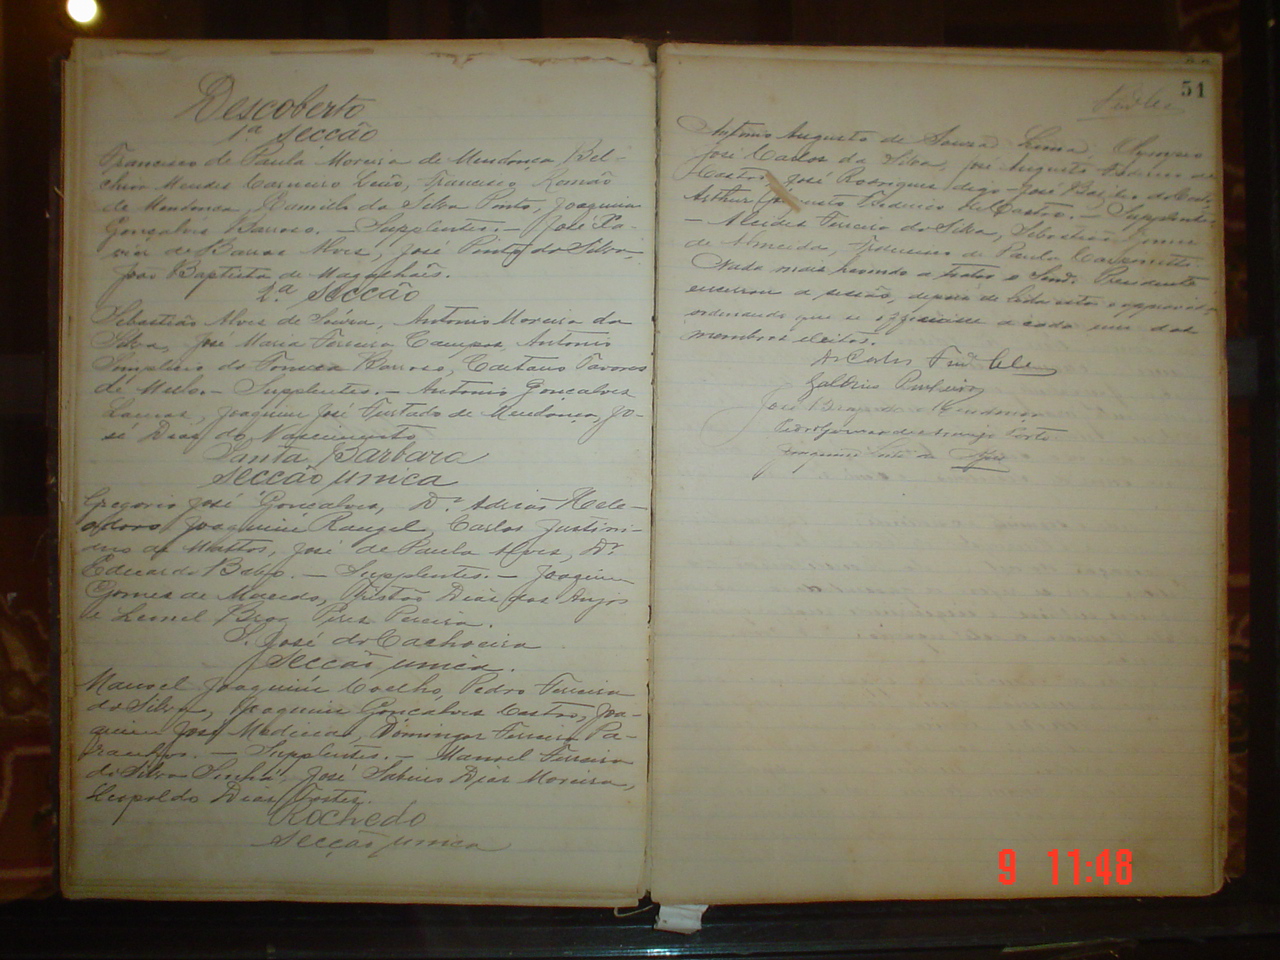 Descoberto
1ª secção
Francisco de Paula Moreira de Mendonça, Bel-
chior Mendes Carneiro Leão, Francisco Romão
de Mendonça, Ramillo da Silva Pinto, Joaquim
Gonçalves Barroso. — Supplentes. — José Xa-
vier de Barros Alves, José Pinto da Silva,
João Baptista de Magalhães.
2.ª secção
Sebastião Alves de Souza, Antonio Moreira da
Silva, José Maria Ferreira Campos, Antonio
Simplicio da Fonseca Barroso, Caetano Tavares
de Mello. — Supplentes. — Antonio Gonçalves
Lamas, Joaquim José Furtado de Mendonça, Jo-
sé Dias do Nascimento
Santa Barbara
Secção unica
Gregorio José Gonçalves, Dr. Adrião Hele-
odoro Joaquim Rangel, Carlos Justini-
ano de Mattos, José de Paula Alves, Dr.
Eduardo Babo. — Supplentes. — Joaquim
Gomes de Macedo, Tristão Dias dos Anjos
e Leonel Braz Pires Pereira.
S. José da Cachoeira
Secção unica.
Manoel Joaquim Coelho, Pedro Ferreira
da Silva, Joaquim Gonçalves Castro, Joa-
quim José Medina, Domingos Ferreira Pa-
ranhos. — Supplentes. — Manoel Ferreira
da Silva Sinhá, José Sabino Dias Moreira,
Leopoldo Dias
Rochedo
Secção unica
51
Antonio Augusto de Souza Lima,
José Carlos da Silva, José Augusto Federico de
Castro, José Rodrigues digo José
Arthur Augusto Federico de Castro. — Supplentes
— Alcides Ferreira da Silva, Sebastião Gomes
de Almeida, Francisco de Paula
Nada mais havendo a tratar o Snr. Presidente
encerrou a sessão, depois de lida esta e approvada,
ordenando que se officiasse a cada um dos
membros eleitos.
Galdino Pinheiro
José de Mendonça
Pedro Fernandes Araujo Porto
Joaquim
9 11:48